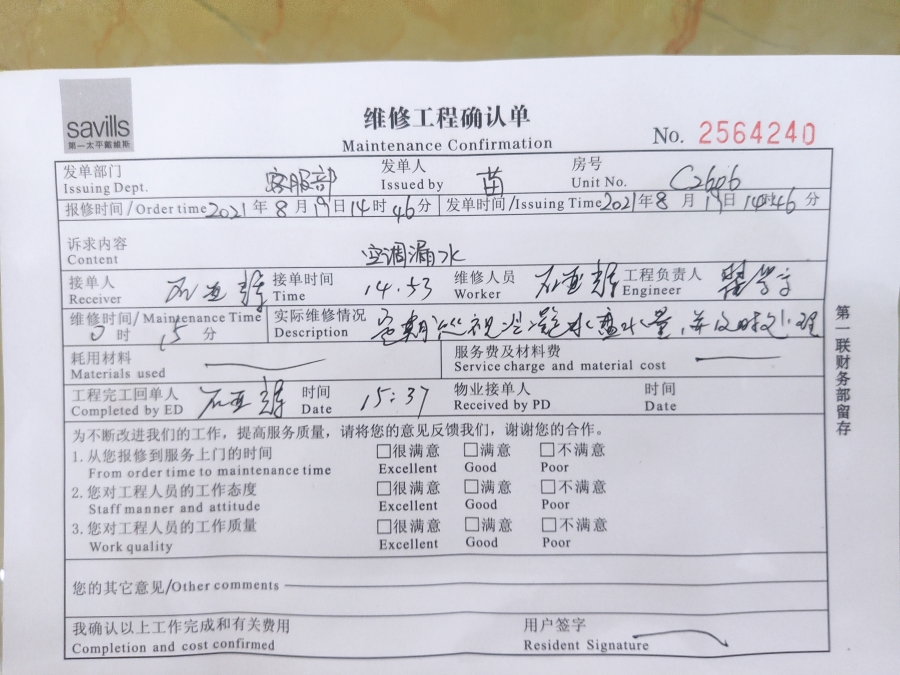 savills
第一太平戴维斯
维修工程确认单
Maintenance Confirmation
No. 2564240
发单部门 客服部 发单人 苗 房号 C2606
Issuing Dept. Issued by Unit No.
报修时间/Order time 2021年8月19日14时46分 发单时间/Issuing Time 2021年8月19日14时46分
诉求内容 空调漏水
Content
接单人 接单时间 14.53 维修人员 工程负责人
Receiver Time Worker Engineer
维修时间/Maintenance Time 实际维修情况
0时15分 Description 定期巡视冷凝水盘水量,并及时处理
耗用材料 服务费及材料费
Materials used Service charge and material cost
工程完工回单人 时间 15:37 物业接单人 时间
Completed by ED Date Received by PD Date
为不断改进我们的工作，提高服务质量，请将您的意见反馈我们，谢谢您的合作。
1.从您报修到服务上门的时间 □很满意 □满意 □不满意
From order time to maintenance time Excellent Good Poor
2.您对工程人员的工作态度 □很满意 □满意 □不满意
Staff manner and attitude Excellent Good Poor
3.您对工程人员的工作质量 □很满意 □满意 □不满意
Work quality Excellent Good Poor
您的其它意见/Other comments
我确认以上工作完成和有关费用 用户签字
Completion and cost confirmed Resident Signature
第一联财务部留存